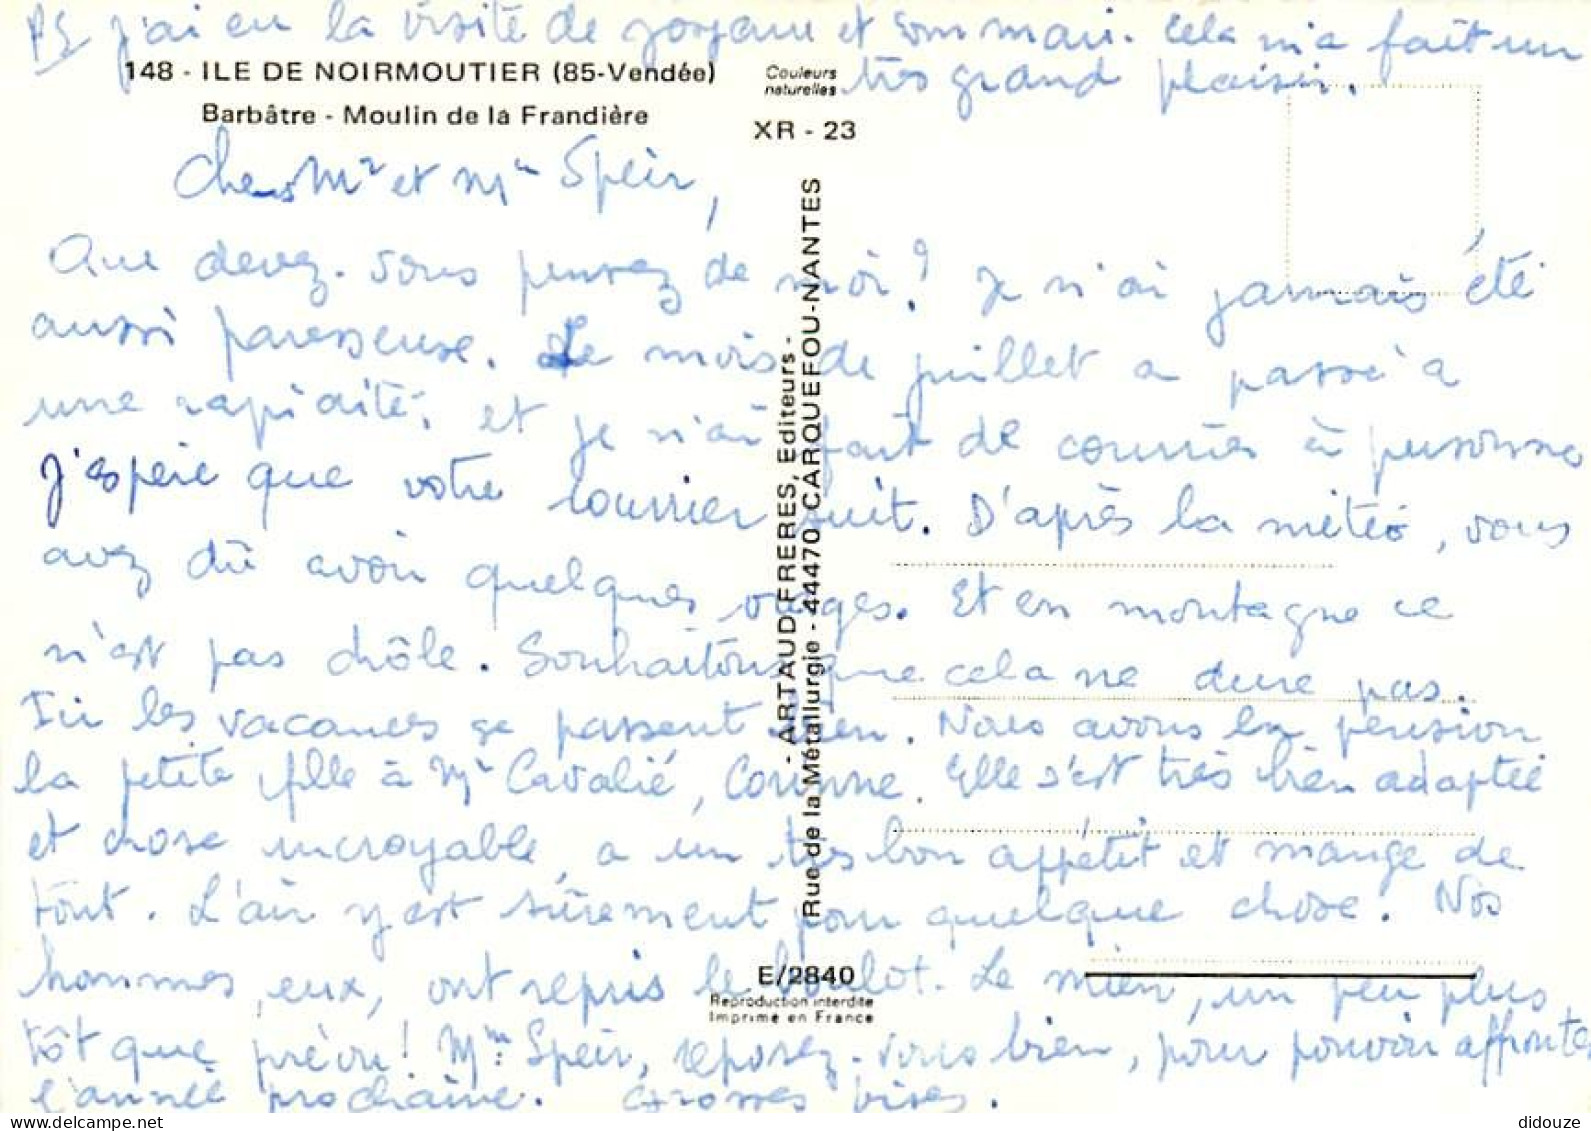 PS j'ai eu la visite de et son mari. Cela m'a fait un
très grand plaisir.
148 - ILE DE NOIRMOUTIER (85-Vendée)
Barbâtre - Moulin de la Frandière
Couleurs
naturelles
XR - 23
Chers Mr et Mme Speir,
Que devez-vous pensez de moi ? Je n'ai jamais été
aussi paresseuse. Le mois de juillet a passé à
une rapidité, et je n'ai fait de courrier à personne
J'espère que votre courrier suit. D'après la météo, vous
avez dû avoir quelques orages. Et en montagne ce
n'est pas drôle. Souhaitons que cela ne dure pas.
Ici les vacances se passent bien. Nous avons en pension
la petite fille à Me Cavalié, Corinne. Elle s'est très bien adaptée
et chose incroyable, a un très bon appétit et mange de
tout. L'air y est sûrement pour quelque chose. Nos
hommes, eux, ont repris le boulot. Le mien, un peu plus
tôt que prévu ! Mme Speir, reposez-vous bien, pour pouvoir affronter
l'année prochaine. Grosses bises.
- ARTAUD FRERES, Editeurs -
Rue de la Métallurgie - 44470 CARQUEFOU-NANTES
E/2840
Reproduction interdite
Imprimé en France
didouze